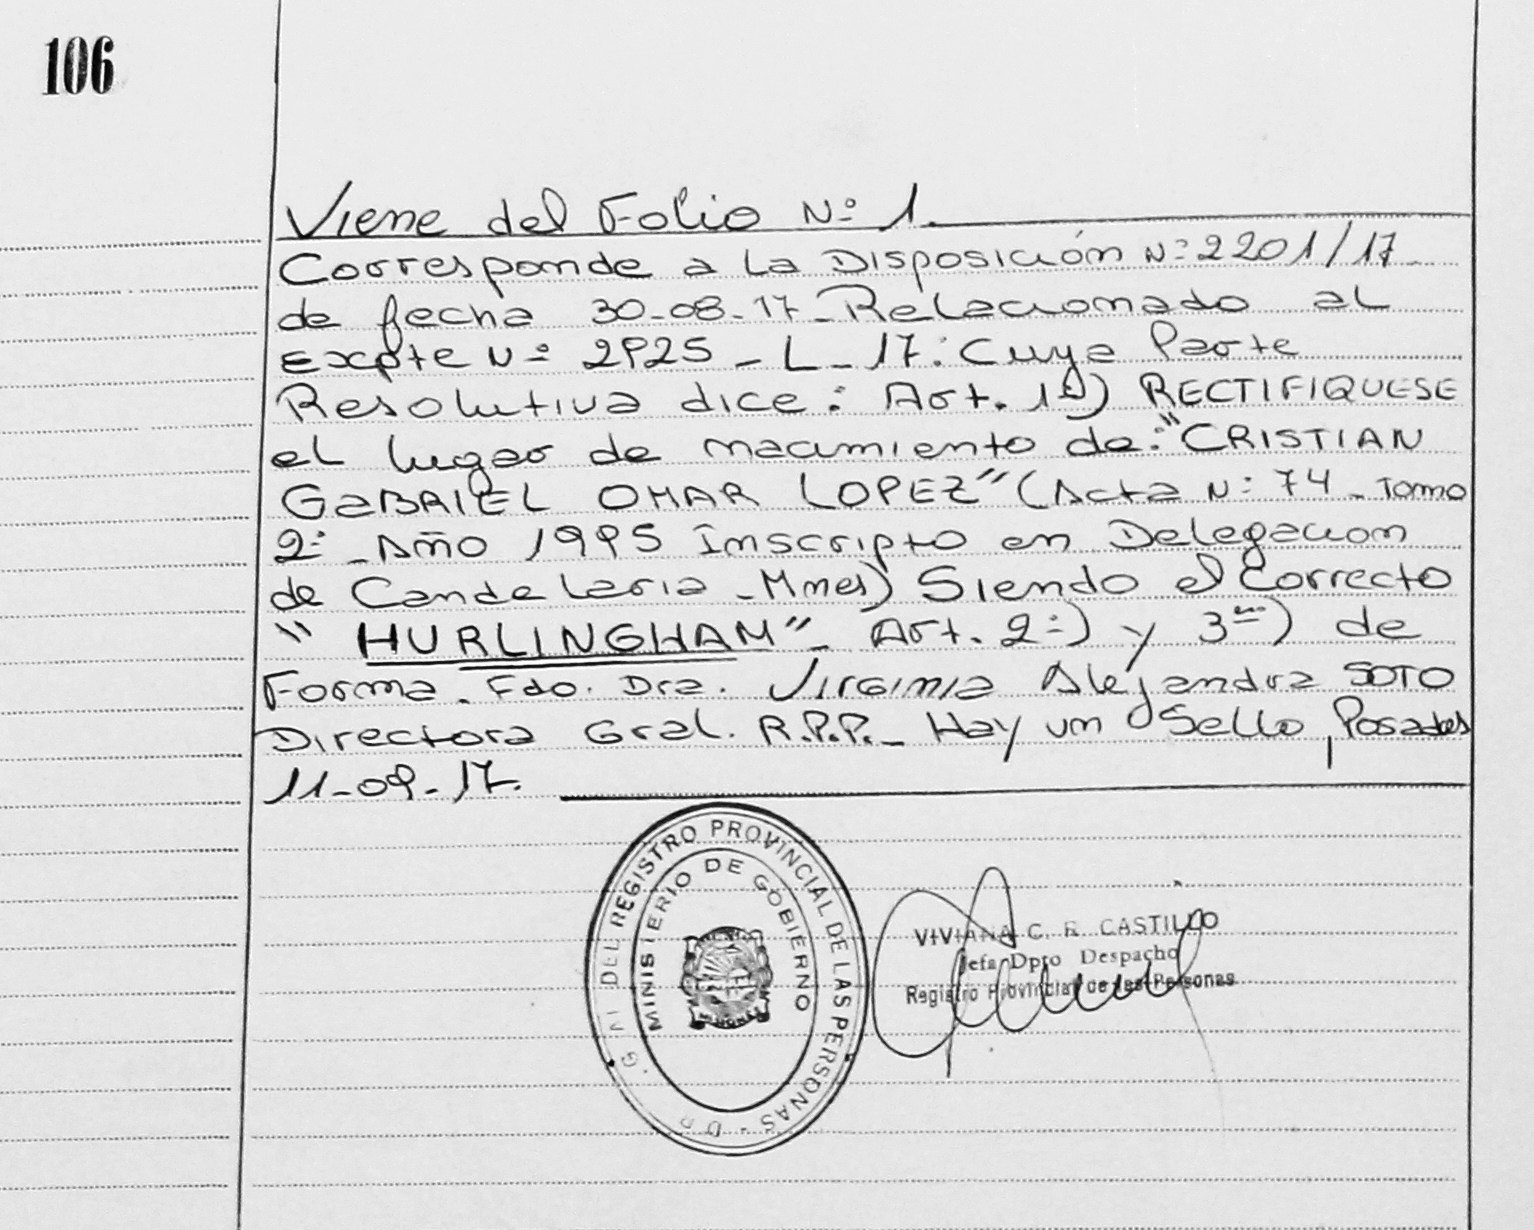 106
Viene del Folio Nº 1.
Corresponde a La Disposición Nº 2201/17
de fecha 30-08-17 - Relacionado al
Expte Nº 2925 - L - 17: Cuya Parte
Resolutiva dice: Art. 1º) RECTIFIQUESE
el lugar de nacimiento de: "CRISTIAN
GABRIEL OMAR LOPEZ" (Acta Nº 74 - Tomo
2º - Año 1995 Inscripto en Delegacion
de Candelaria - Mnes) Siendo el Correcto
"HURLINGHAM" - Art. 2º) y 3ero) de
Forma. Fdo. Dra. Virginia Alejandra SOTO
Directora Gral. R.P.P. - Hay un Sello, Posadas
11-09-17.
DEL REGISTRO PROVINCIAL DE LAS PERSONAS
MINISTERIO DE GOBIERNO
VIVIANA C. R. CASTILLO
Jefa Dpto Despacho
Registro Provincial de las Personas